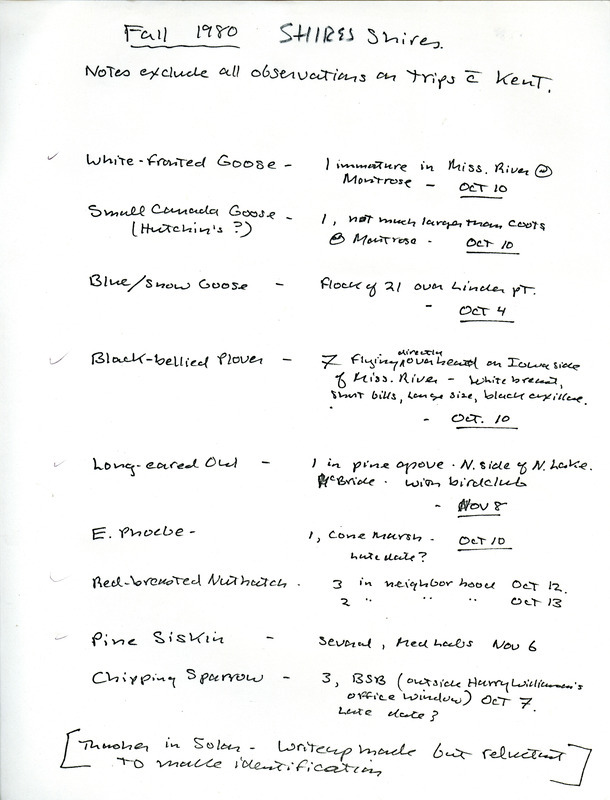 Fall 1980 SHIRES Shires.
Notes exclude all observations on trips c̄ Kent.
✓ White-fronted Goose - 1 immature in Miss. River @
Montrose - OCT 10
Small Canada Goose - 1, not much larger than coots
(Hutchin's?) @ Montrose - OCT 10
Blue/Snow Goose - flock of 21 over Linder pt.
- OCT 4
✓ Black-bellied Plover - 7 flying directly overhead on Iowa side
of Miss. River - white breast,
short bills, large size, black axillae.
- OCT. 10
✓ Long-eared Owl - 1 in pine grove. N. side of N. Lake.
McBride. with birdclub
- NOV 8
E. Phoebe - 1, Cone Marsh. OCT 10
late date?
✓ Red-breasted Nuthatch. 3 in neighborhood OCT 12.
2 " " " OCT 13
✓ Pine Siskin - several, Med Labs Nov 6
Chipping Sparrow - 3, BSB (outside Harry
office window) OCT 7.
late date?
[Thrasher in Solon - writeup made but reluctant
to make identification]